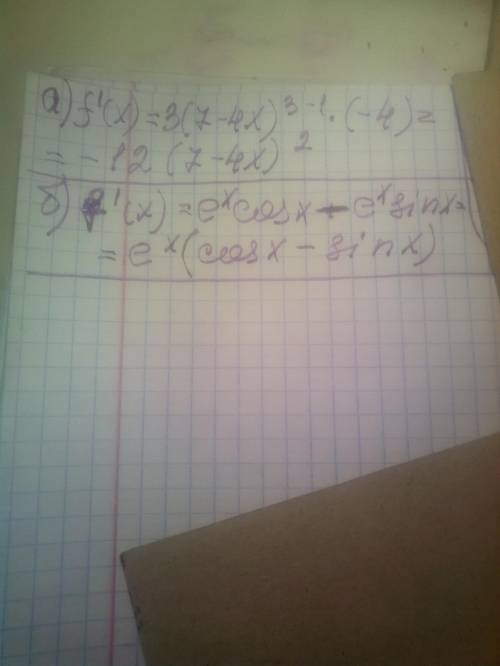 а) f'(x) = 3(7-4x)³⁻¹·(-4) =
= -12 (7-4x)²
б) f'(x) = eˣcosx - eˣsinx =
= eˣ(cosx - sinx)